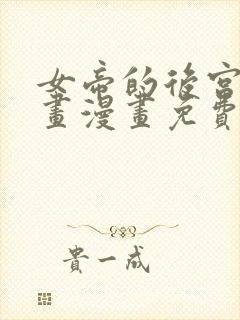 女帝的後宮
畫漫畫免費
貴一成